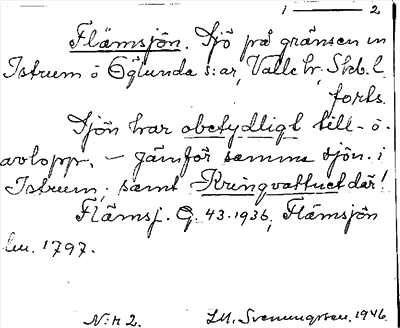 1 — 2
Flämsjön. Sjö på gränsen m
Istrum o Öglunda s:ar, Valle hr, Skb. l.
forts.
Sjön har obetydligt till- o.
avlopp. – Jämför samma sjön i
Istrum, samt Kringvattnet där!
Flämsj. G. 43. 1936, Flämsjön
lm. 1797.
N:r 2. LM. Svenungsson. 1946.